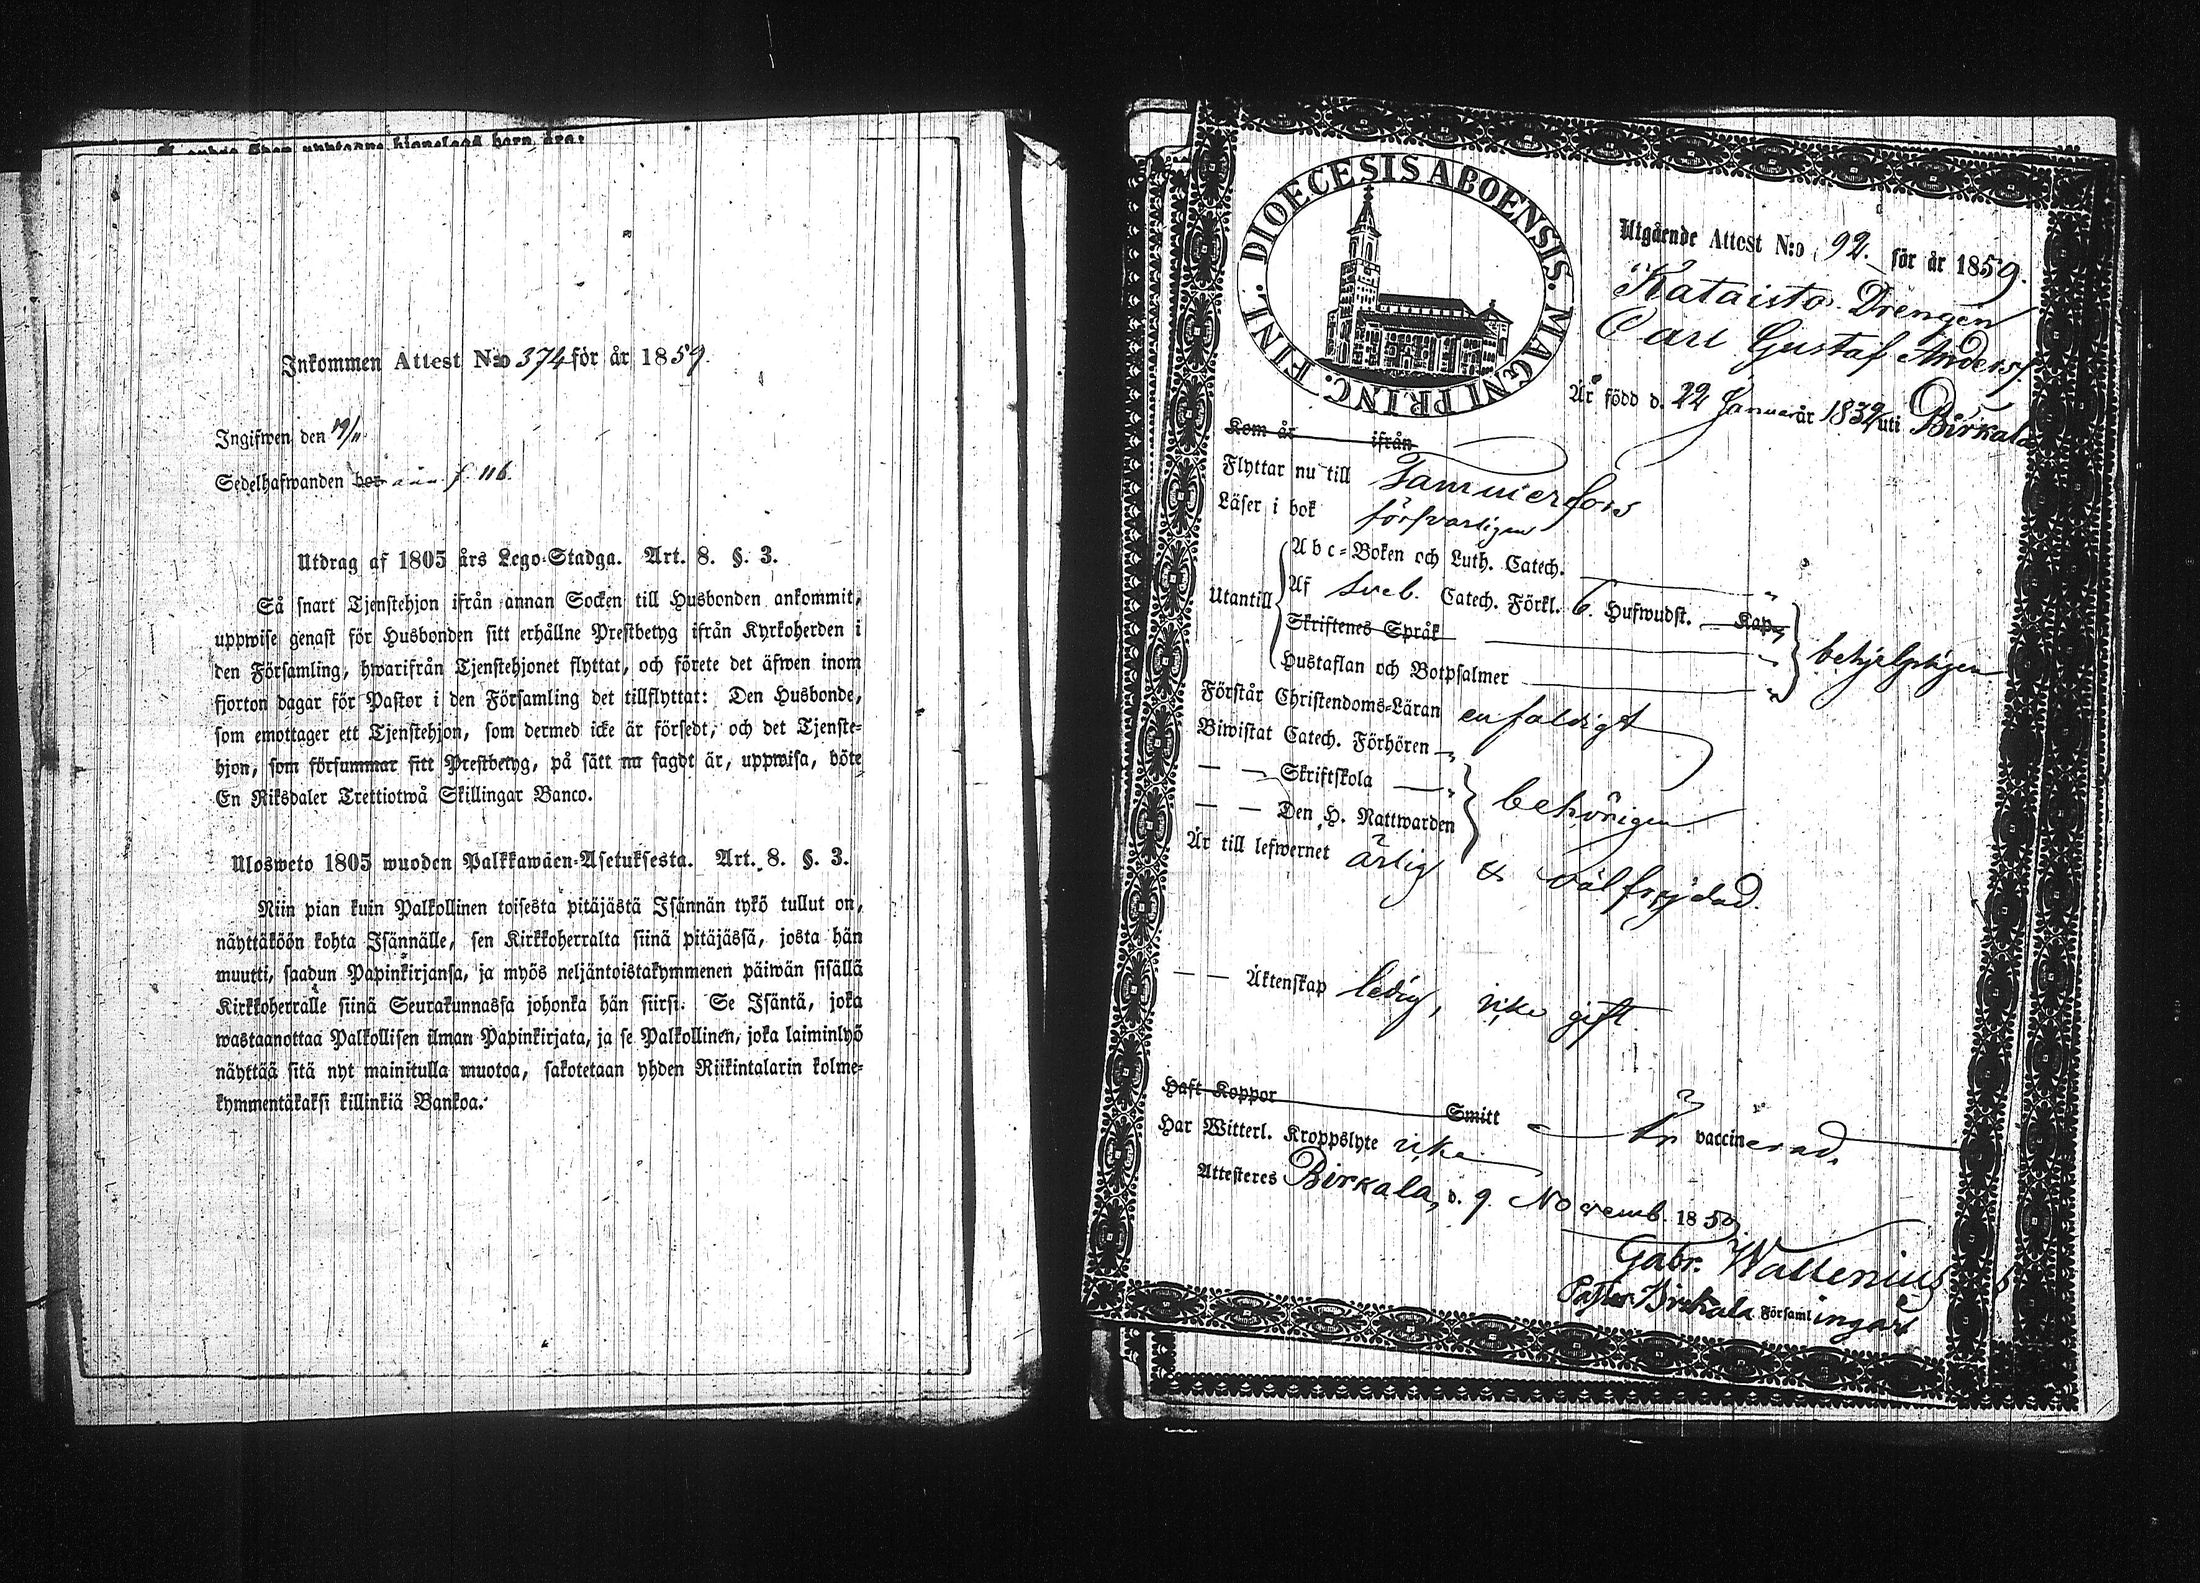 Inkommen Attest N:o 374 för år 1859.
Ingifwen den 19/11
Sedelhafwanden bor f. 116.
Utdrag af 1805 års Lego-Stadga. Art. 8. §. 3.
Så snart Tjenstehjon ifrån annan Socken till Husbonden ankommit,
uppwise genast för Husbonden sitt erhållne Prestbetyg ifrån Kyrkoherden i
den Församling, hwarifrån Tjenstehjonet flyttat, och förete det äfwen inom
fjorton dagar för Pastor i den Församling det tillflyttat: Den Husbonde,
som emottager ett Tjenstehjon, som dermed icke är försedt, och det Tjenste-
hjon, som försummar sitt Prestbetyg, på sätt nu sagdt är, uppwisa, böte
En Riksdaler Trettiotwå Skillingar Banco.
Ulosweto 1805 wuoden Palkkawäen-Asetuksesta. Art. 8. §. 3.
Niin pian kuin Palkollinen toisesta pitäjästä Isännän tykö tullut on,
näyttäköön kohta Isännälle, sen Kirkkoherralta siinä pitäjässä, josta hän
muutti, saadun Papinkirjansa, ja myös neljäntoistakymmenen päiwän sisällä
Kirkkoherralle siinä Seurakunnassa johonka hän siirsi. Se Isäntä, joka
wastaanottaa Palkollisen ilman Papinkirjata, ja se Palkollinen, joka laiminlyö
näyttää sitä nyt mainitulla muotoa, sakotetaan yhden Riikintalarin kolme-
kymmentäkaksi killinkiä Bankoa.
DIOECESIS ABOENSIS. MAGNI PRINC. FINL.
Utgående Attest N:o 92. för år 1859.
Kataisto Drengen
Carl Gustaf Anders.
Är född d. 22 Januari år 1832 uti Birkala
Kom år ifrån
Flyttar nu till Tammerfors
Läser i bok försvarligen
Utantill
Abc-Boken och Luth. Catech.
Af Sveb. Catech. Förkl. 6. Hufwudst. Kap.
Skriftenes Språk
Hustaflan och Botpsalmer
behjelpligen
Förstår Christendoms-Läran enfaldigt
Biwistat Catech. Förhören
— — Skriftskola
— — Den H. Nattwarden
behörigen.
Är till lefwernet ärlig & välfrejdad.
— — Äktenskap ledig, icke gift.
Haft Koppor Smitt Är vaccinerad.
Har Witterl. Kroppslyte icke
Attesteres Birkala, d. 9. Novemb. 1859
Gabr. Wallenius
Pastor Birkala Församlingar